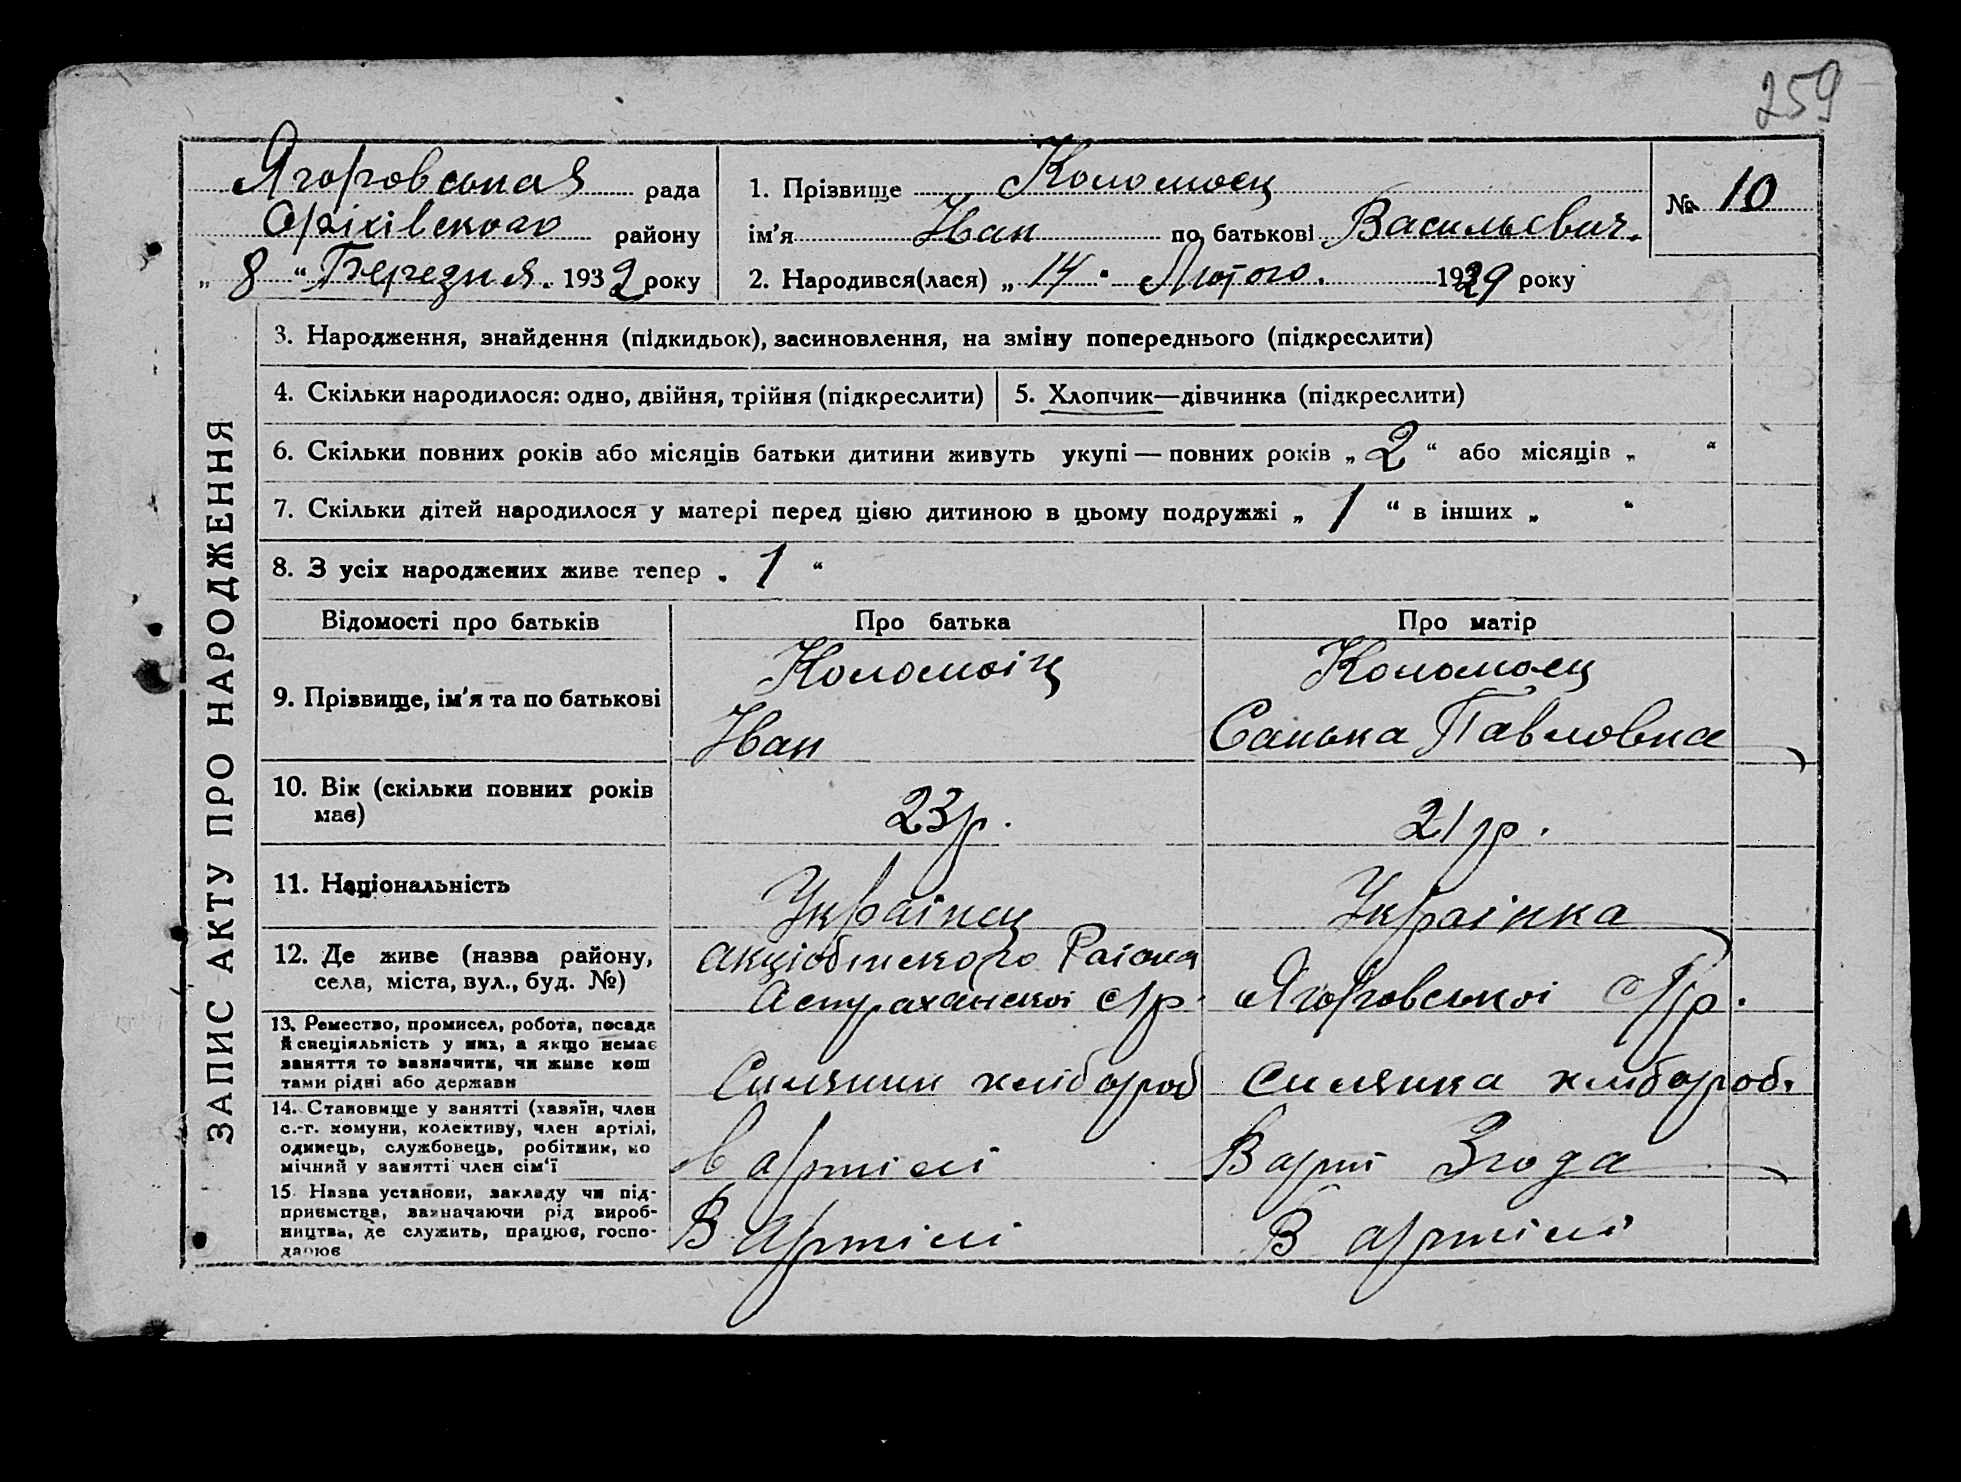 259
Ягоровская рада
Оріхівского району
„ 8 “ Березня. 1932 року
1. Прізвище Коломоец
ім'я Иван по батькові Васильевич.
№ 10
2. Народився(лася) „ 14 “ Лютого. 1929 року
ЗАПИС АКТУ ПРО НАРОДЖЕННЯ
3. Народження, знайдення (підкидьок), засиновлення, на зміну попереднього (підкреслити)
4. Скільки народилося: одно, двійня, трійня (підкреслити)
5. Хлопчик—дівчинка (підкреслити)
6. Скільки повних років або місяців батьки дитини живуть укупі — повних років „ 2 “ або місяців „ “
7. Скільки дітей народилося у матері перед цією дитиною в цьому подружжі „ 1 “ в інших „ “
8. З усіх народжених живе тепер „ 1 “
Відомості про батьків
Про батька
Про матір
9. Прізвище, ім'я та по батькові
Коломоіц
Иван
Коломоец
Санька Павловна
10. Вік (скільки повних років
має)
23 р.
21 р.
11. Національність
Украінец
Украінка
12. Де живе (назва району,
села, міста, вул., буд. №)
Раіона
Астраханскоі с/р.
Ягоровськоі с/р.
13. Ремество, промисел, робота, посада
й спеціяльність у них, а якщо немає
заняття то зазначити, чи живе кош
тами рідні або держави
Силянин хлібороб
Силянка хлібороб.
14. Становище у занятті (хазяїн, член
с.-г. комуни, колективу, член артілі,
одинець, службовець, робітник, по
мічний у занятті член сім'ї
В артілі
В арті Згода
15. Назва установи, закладу чи під-
приємства, зазначаючи рід вироб-
ництва, де служить, працює, госпо-
дарює
В артілі
В артілі